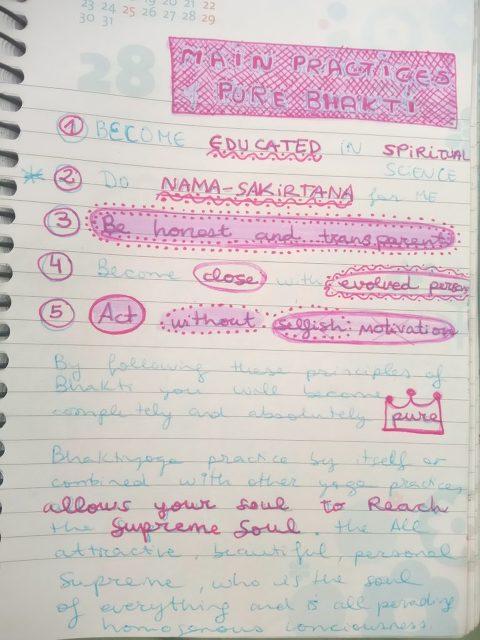 19 20 21 22
23 24 25 26 27 28 29
30 31
28
MAIN PRACTICES
of PURE BHAKTI
① BECOME EDUCATED IN SPIRITUAL
SCIENCE
* ② Do NAMA-SAKIRTANA for ME
③ Be honest and transparent
④ Become close with evolved person
⑤ Act without selfish motivation
By following these principles of
Bhakti you will become
completely and absolutely pure
Bhaktiyoga practice by itself or
combined with other yoga practices
allows your soul to Reach
the Supreme Soul. the All
attractive, beautiful, personal
Supreme, who is the soul
of everything and is all perading
homogenous conciousness.